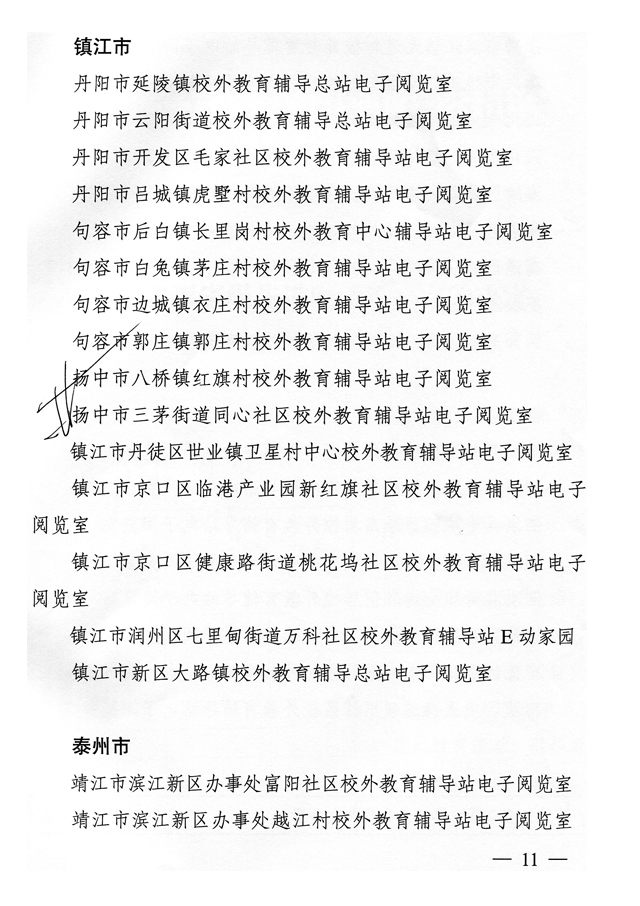 镇江市
丹阳市延陵镇校外教育辅导总站电子阅览室
丹阳市云阳街道校外教育辅导总站电子阅览室
丹阳市开发区毛家社区校外教育辅导站电子阅览室
丹阳市吕城镇虎墅村校外教育辅导站电子阅览室
句容市后白镇长里岗村校外教育中心辅导站电子阅览室
句容市白兔镇茅庄村校外教育辅导站电子阅览室
句容市边城镇衣庄村校外教育辅导站电子阅览室
句容市郭庄镇郭庄村校外教育辅导站电子阅览室
扬中市八桥镇红旗村校外教育辅导站电子阅览室
扬中市三茅街道同心社区校外教育辅导站电子阅览室
镇江市丹徒区世业镇卫星村中心校外教育辅导站电子阅览室
镇江市京口区临港产业园新红旗社区校外教育辅导站电子
阅览室
镇江市京口区健康路街道桃花坞社区校外教育辅导站电子
阅览室
镇江市润州区七里甸街道万科社区校外教育辅导站E动家园
镇江市新区大路镇校外教育辅导总站电子阅览室
泰州市
靖江市滨江新区办事处富阳社区校外教育辅导站电子阅览室
靖江市滨江新区办事处越江村校外教育辅导站电子阅览室
— 11 —